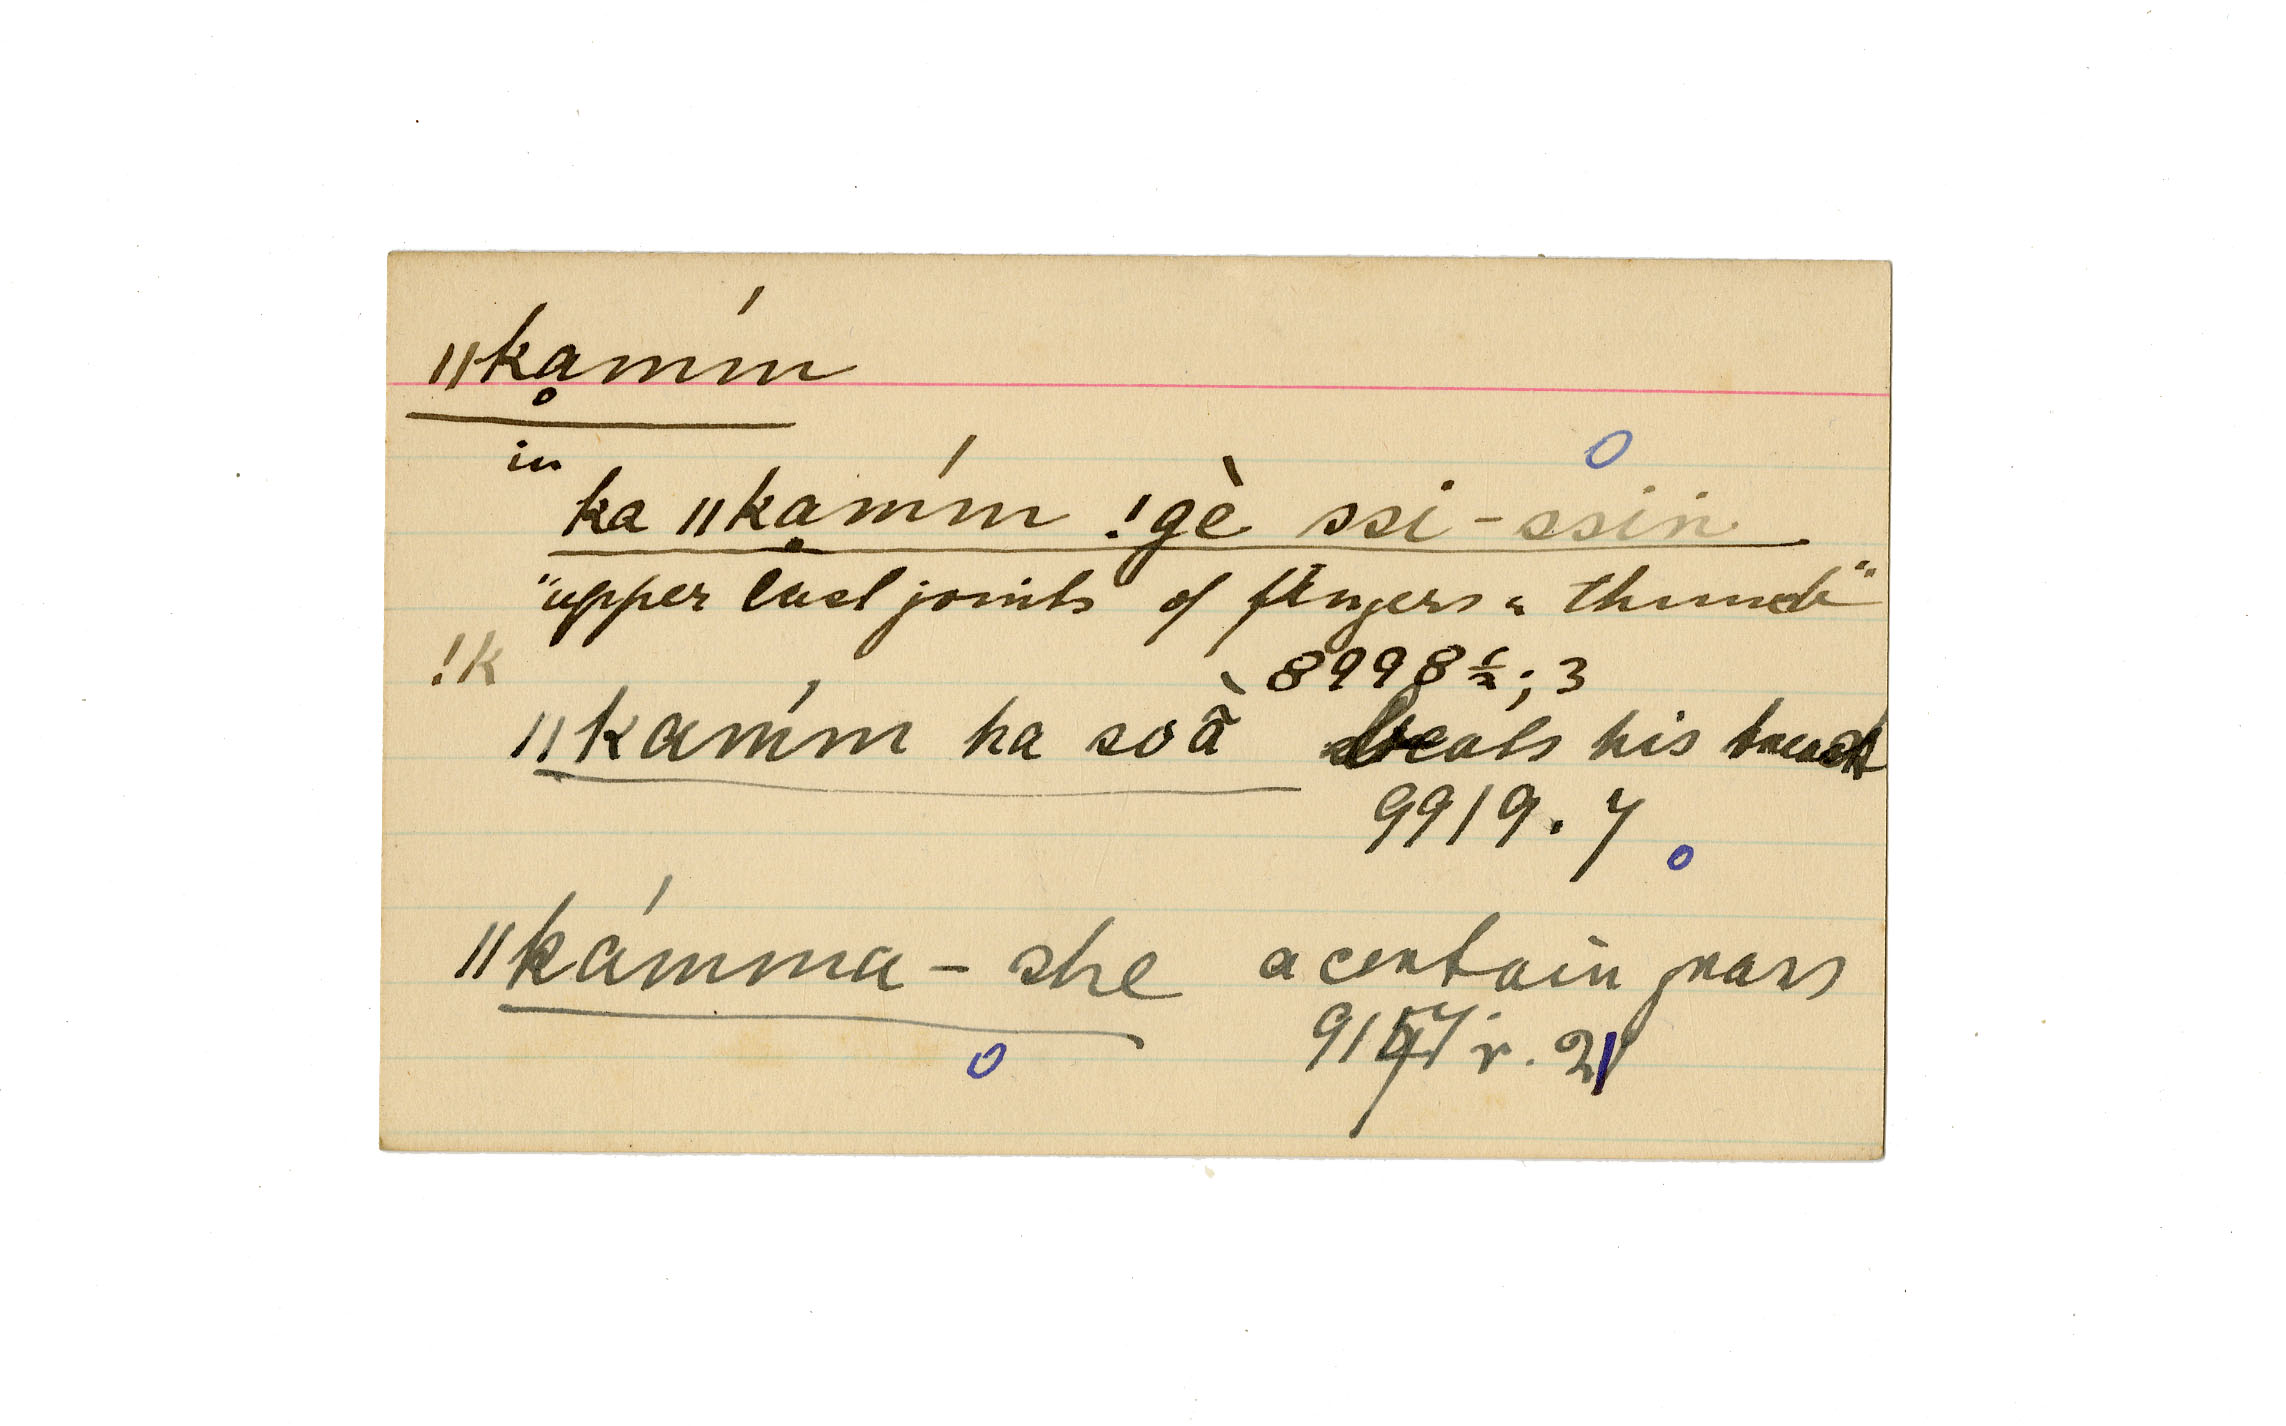 ǁkạ̊mḿ
in
ka ǁkạmḿ !gè ssi-ssin
"upper last joints of fingers & thumb"
!k 8998½; 3
ǁkamḿ ha soã̀ beats his breast
9919. 7
ǁkámma-she a certain grass
9157 r. 21